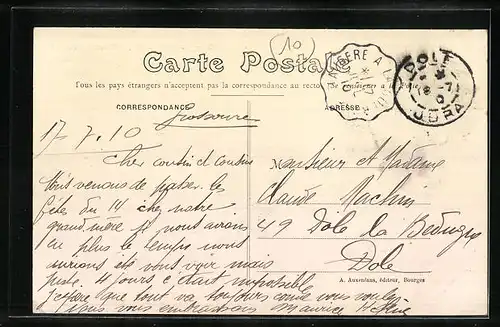 (10)
Carte Postale
Tous les pays étrangers n'acceptent pas la correspondance au recto
CORRESPONDANCE
ADRESSE
DOLE
JURA
17-7-10
Cher cousin et cousine
Nous venons de passer les
fêtes du 14 chez notre
grand mère si nous avions
eu plus le temps nous
aurions été vous voir mais
4 jours c'était impossible
J'espère que tout va toujours comme vous voulez
vous embrassons Maurice
Monsieur et Madame
Claude Machin
49 Dole la Bedugue
Dole
A. Auxenfans, éditeur, Bourges